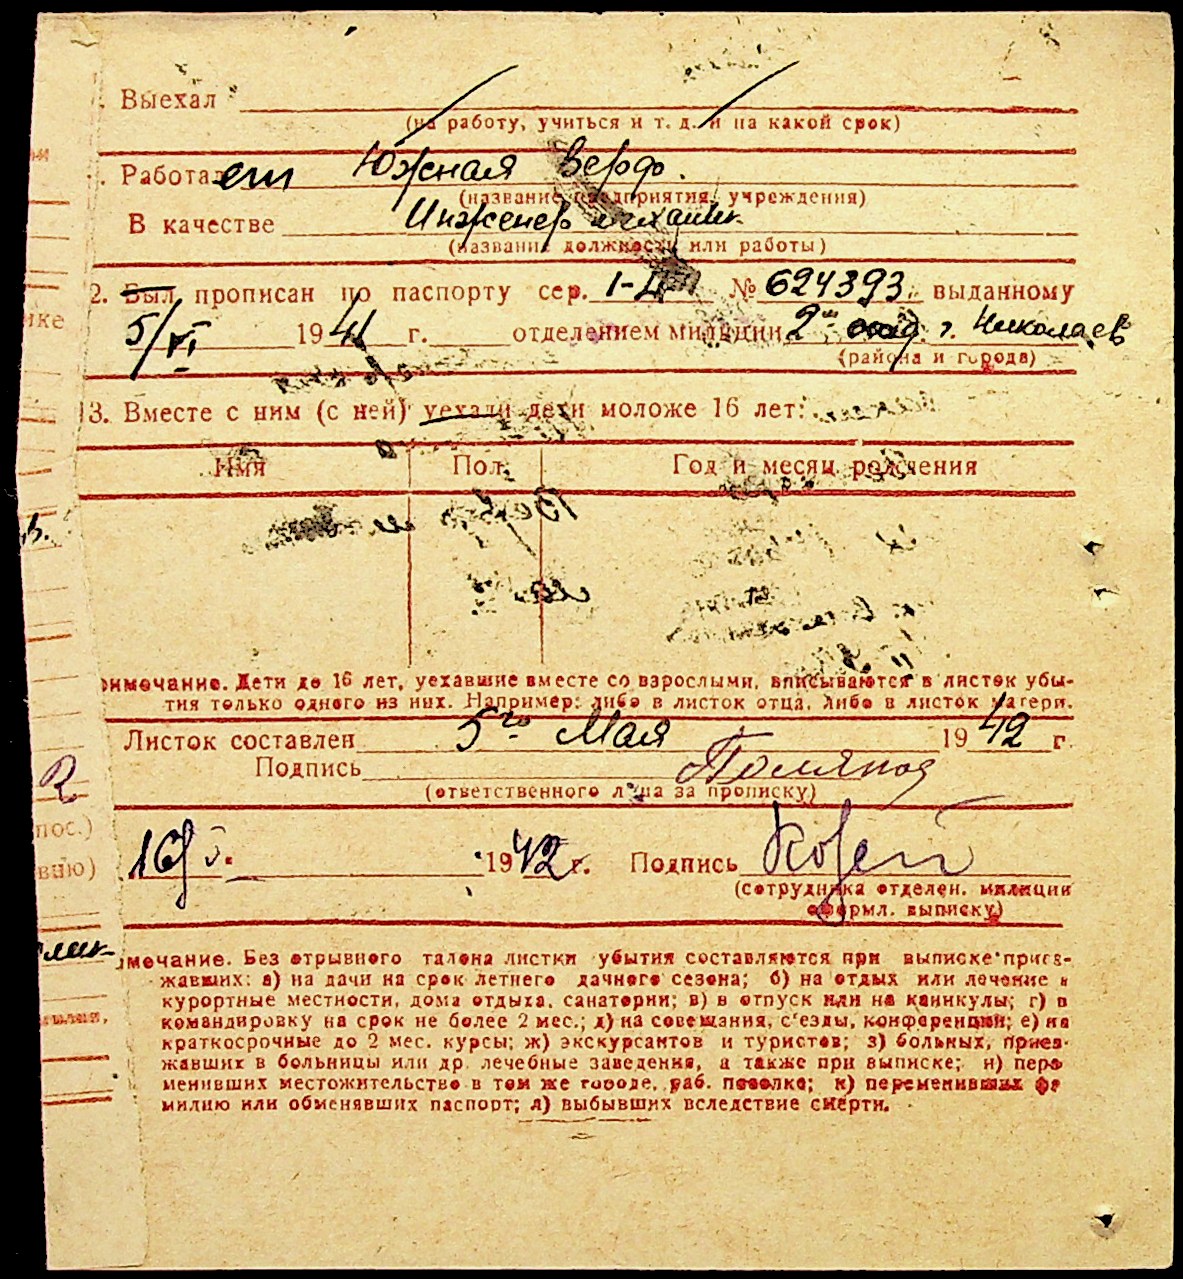 Выехал
(на работу, учиться и т. д. и на какой срок)
Работает Южная верфь.
(название предприятия, учреждения)
В качестве Инженер механик
(название должности или работы)
2. Был прописан по паспорту сер. I-Д № 624393 выданному
5/VI 1941 г. отделением милиции 2 г. Николаев
(района и города)
13. Вместе с ним (с ней) уехали дети моложе 16 лет:
Имя Пол Год и месяц рождения
римечание. Дети до 16 лет, уехавшие вместе со взрослыми, вписываются в листок убы-
тия только одного из них. Например: либо в листок отца, либо в листок матери.
Листок составлен 5го Мая 1942 г
Подпись
(ответственного лица за прописку)
пос.)
16/V. 1942 г. Подпись
вию)
(сотрудника отделен. милиции
оформл. выписку)
имечание. Без отрывного талона листки убытия составляются при выписке приез-
жавших: а) на дачи на срок летнего дачного сезона; б) на отдых или лечение в
курортные местности, дома отдыха, санатории; в) в отпуск или на каникулы; г) в
командировку на срок не более 2 мес.; д) на совещания, с'езды, конференции; е) на
краткосрочные до 2 мес. курсы; ж) экскурсантов и туристов; з) больных, приез-
жавших в больницы или др. лечебные заведения, а также при выписке; и) пере
менивших местожительство в том же городе, раб. поселке; к) переменивших фа
милию или обменявших паспорт; л) выбывших вследствие смерти.